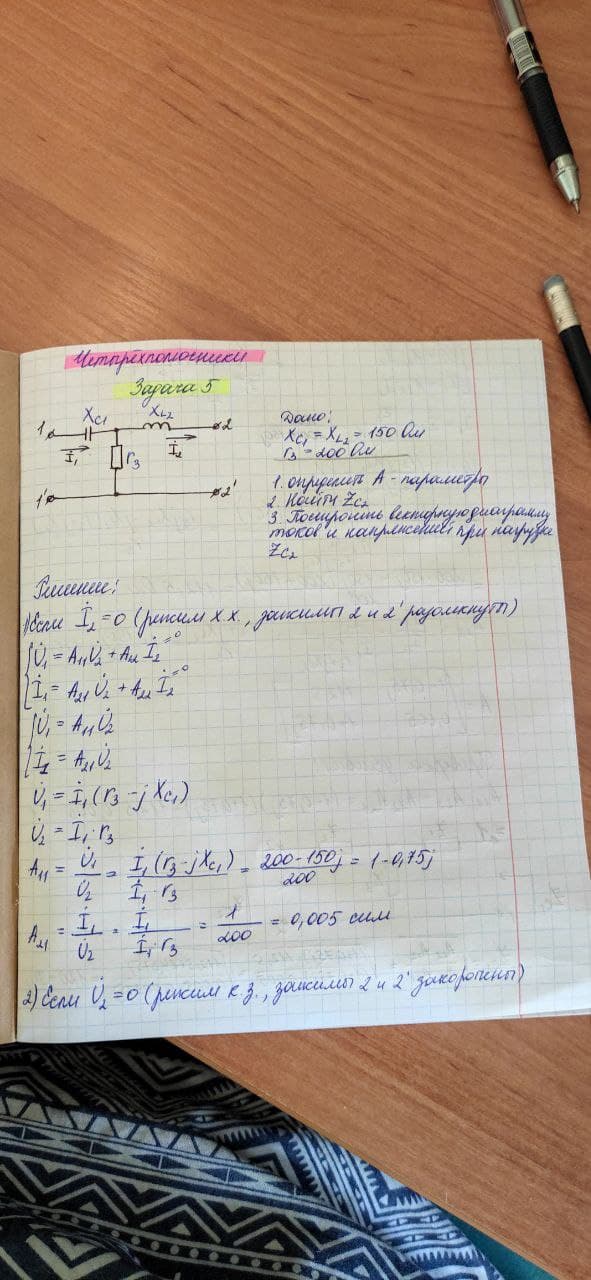 Четырёхполюсники
Задача 5
XC1 XL2
1 2
İ1 r3 İ2
1' 2'
Дано:
XC1 = XL2 = 150 Ом
r3 = 200 Ом
1. определить А - параметры
2. Найти ZC2
3. Построить векторную диаграмму
токов и напряжений при нагрузке
ZC2
Решение:
1) Если İ2 = 0 (режим х.х., зажимы 2 и 2' разомкнуты)
U̇1 = A11U̇2 + A12 İ2 =0
İ1 = A21 U̇2 + A22 İ2 =0
U̇1 = A11 U̇2
İ1 = A21 U̇2
U̇1 = İ1 (r3 - j XC1)
U̇2 = İ1 · r3
A11 = U̇1 / U̇2 = İ1 (r3 - jXC1) / İ1 · r3 = 200 - 150j / 200 = 1 - 0,75j
A21 = İ1 / U̇2 = İ1 / İ1 · r3 = 1 / 200 = 0,005 сим
2) Если U̇2 = 0 (режим к.з., зажимы 2 и 2' закорочены)